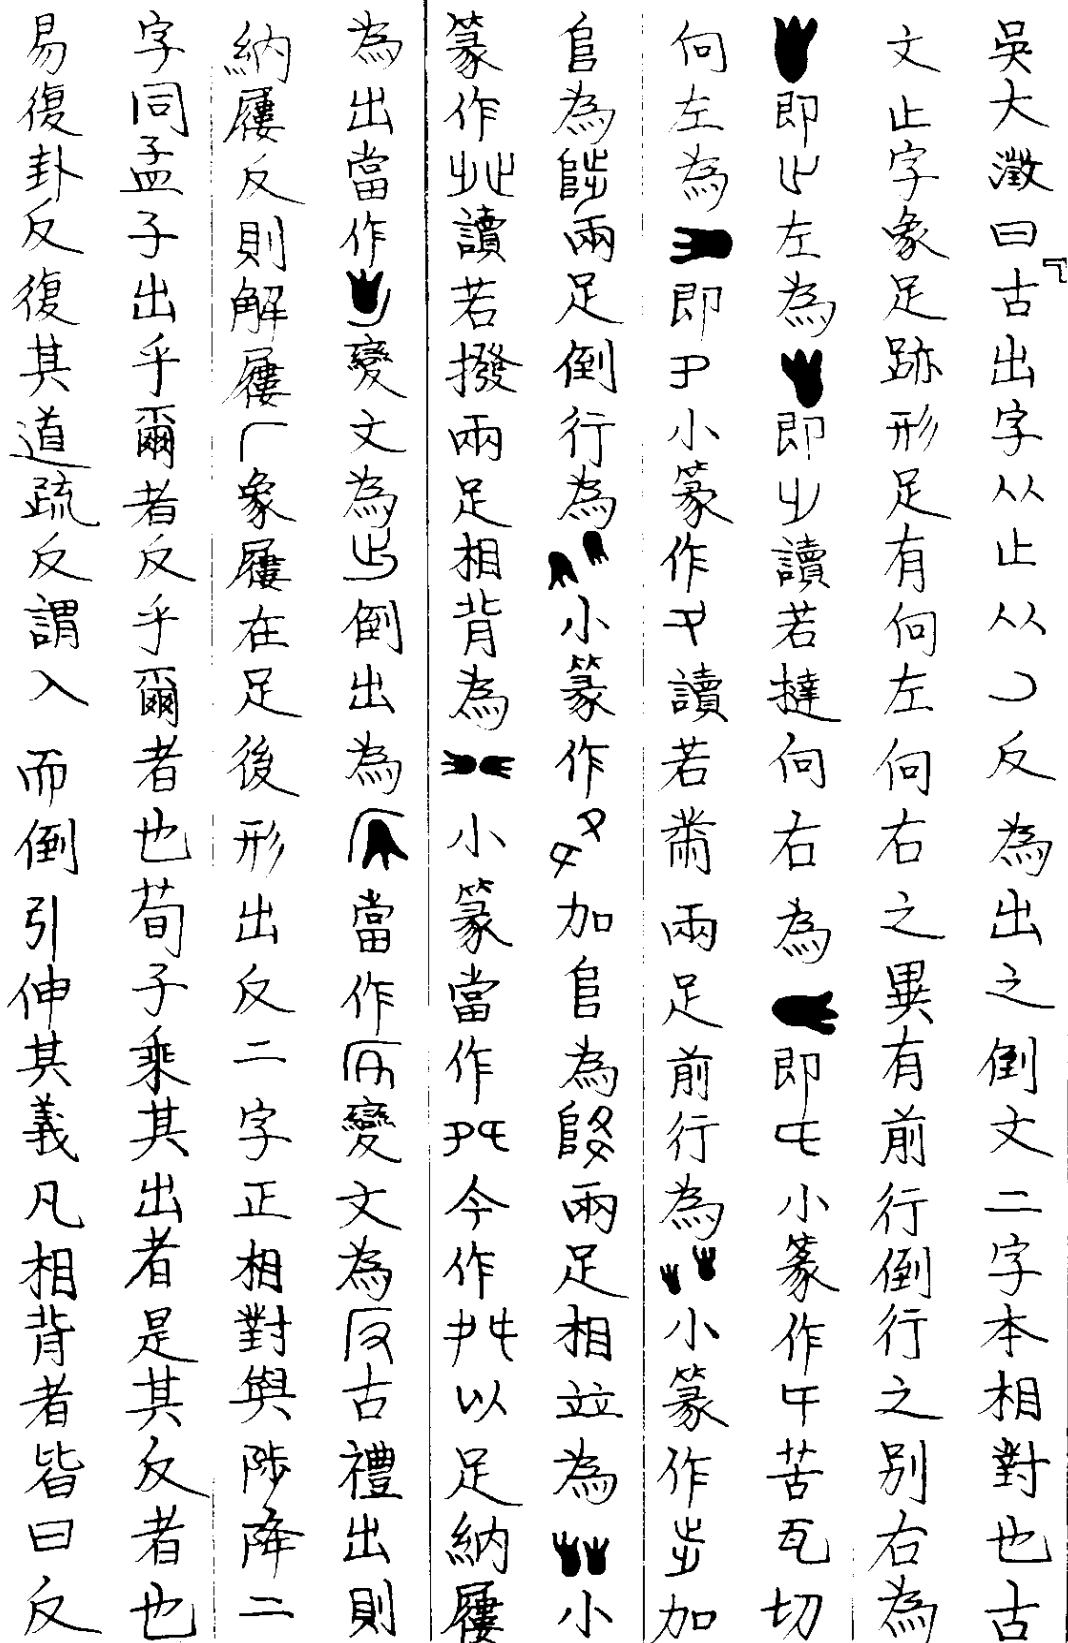 吳大澂曰古出字从止从㇁反為出之倒文二字本相對也古
文止字象足跡形足有向左向右之異有前行倒行之别右為
即止左為即㞢讀若撻向右為即小篆作㐄苦瓦切
向左為即小篆作夂讀若黹兩足前行為小篆作步加
𨸏為陟兩足倒行為小篆作夅加𨸏為降兩足相竝為小
篆作癶讀若撥兩足相背為小篆當作今作舛以足納屨
為出當作變文為倒出為當作變文為反古禮出則
納屨反則解屨厂象屨在足後形出反二字正相對與陟降二
字同孟子出乎爾者反乎爾者也荀子乘其出者是其反者也
易復卦反復其道疏反謂入而倒引伸其義凡相背者皆曰反